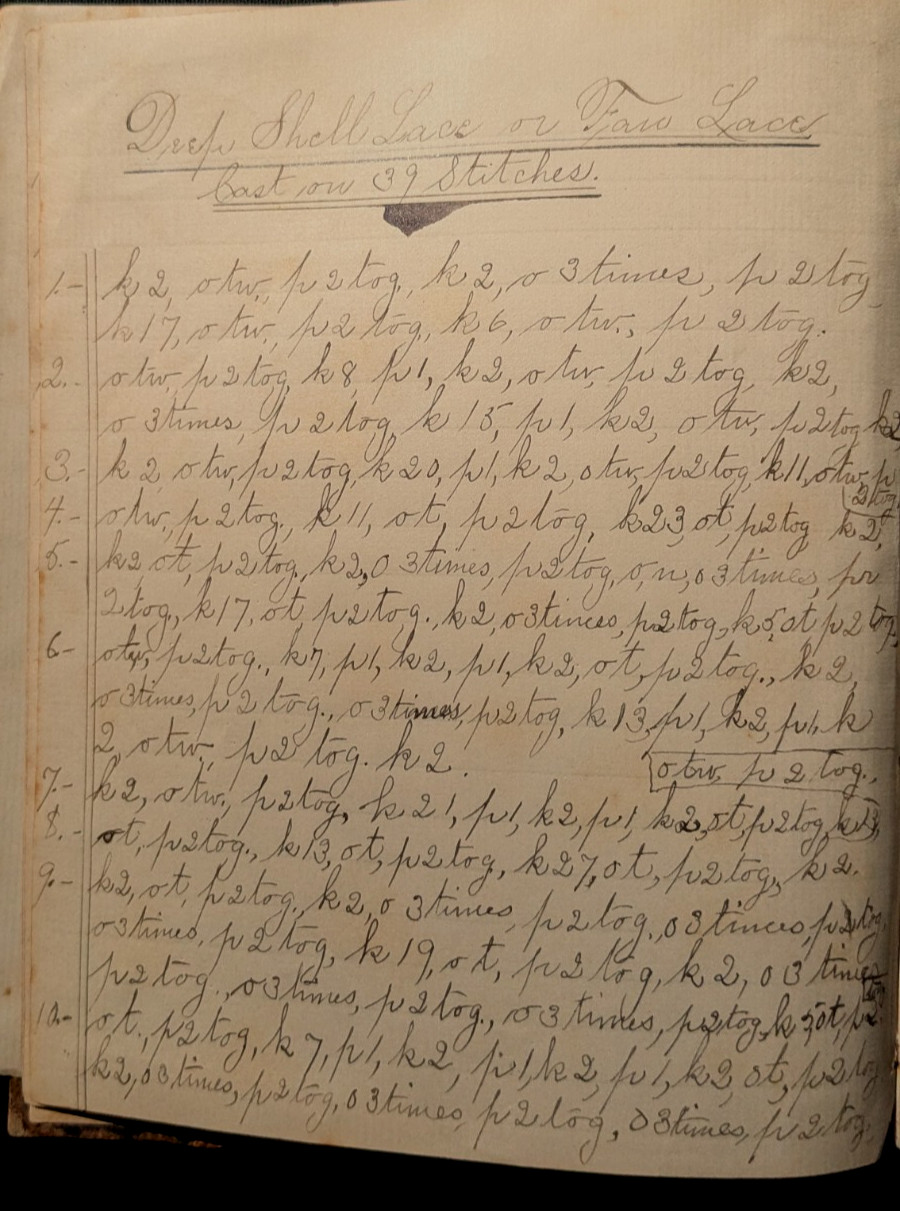 Deep Shell Lace or Fan Lace
Cast on 39 Stitches.
1.- k 2, o tw., p 2 tog., k 2, o 3 times, p 2 tog
k 17, o tw., p 2 tog., k 6, o tw., p 2 tog.
2.- o tw, p 2 tog, k 8, p 1, k 2, o tw, p 2 tog, k 2,
o 3 times, p 2 tog, k 15, p 1, k 2, o tw, p 2 tog k 2
3.- k 2, o tw, p 2 tog, k 20, p 1, k 2, o tw, p 2 tog, k 11, o tw, p
2 tog.
4.- o tw, p 2 tog., k 11, o t, p 2 tog, k 23, o t, p 2 tog k 2,
5.- k 2, o t, p 2 tog., k 2, o 3 times, p 2 tog, o, n, o 3 times, p
2 tog., k 17, o t, p 2 tog., k 2, o 3 times, p 2 tog, k 5, o t p 2 tog.
6- o tw, p 2 tog., k 7, p 1, k 2, p 1, k 2, o t, p 2 tog., k 2,
o 3 times, p 2 tog., o 3 times, p 2 tog, k 13, p 1, k 2, p 1, k
2, o tw., p 2 tog. k 2.
o tw. p 2 tog.,
7.- k 2, o tw., p 2 tog, k 21, p 1, k 2, p 1, k 2, o t, p 2 tog, k 13,
8.- o t, p 2 tog., k 13, o t, p 2 tog, k 27, o t, p 2 tog, k 2.
9.- k 2, o t, p 2 tog., k 2, o 3 times, p 2 tog., o 3 times, p 2 tog,
o 3 times, p 2 tog, k 19, o t, p 2 tog, k 2, o 3 times
p 2 tog., o 3 times, p 2 tog., o 3 times, p 2 tog, k 5, o t, p 2 tog
10.- o t, p 2 tog, k 7, p 1, k 2, p 1, k 2, p 1, k 2, o t, p 2 tog
k 2, o 3 times, p 2 tog, o 3 times, p 2 tog, o 3 times, p 2 tog,